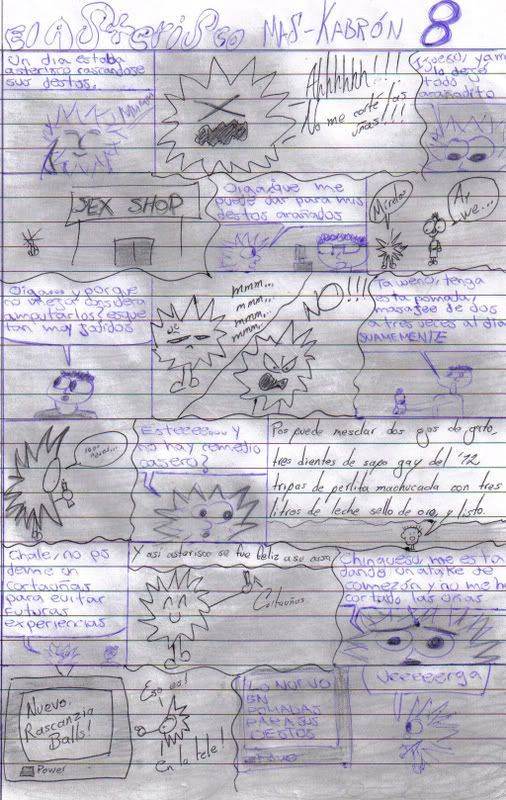 El ASteriSco MaS-KabRÓN 8
Un día estaba
asterisco rascándose
sus destos.
Mmmm
Ahhhhhh!!!
No me corté las
uñas!!!
ya me
lo dejé
todo
arañadito
SEX SHOP
Oiga, que me
puede dar para mis
destos arañados
Mírelos
Ay
we...
Oiga... y porque
no mejor considera
amputarlos? esque
tan muy jodidos
mmm...
mmm...
mmm..
mmm..
NO!!!
Ta weno, tenga
esta pomada,
masajee de dos
a tres veces al día
SUAVEMENTE
Esteeee... y
no hay remedio
casero?
Pos puede mesclar dos ojos de gato,
tres dientes de sapo gay del '72
tripas de perlita machucada con tres
litros de leche sello de oro, y listo.
Chale, no ps
deme un
cortauñas
para evitar
futuras
experiencias
Y así asterisco se fue feliz a su casa
Cortauñas
Chinguesu, me esta
dando un atake de
comezón y no me he
cortado las uñas
Nuevo,
Rascanzin
Balls!
Power
Eso es!
En la tele!
LO NUEVO
EN
POMADAS
PARA SUS
DESTOS
Veeeeerga